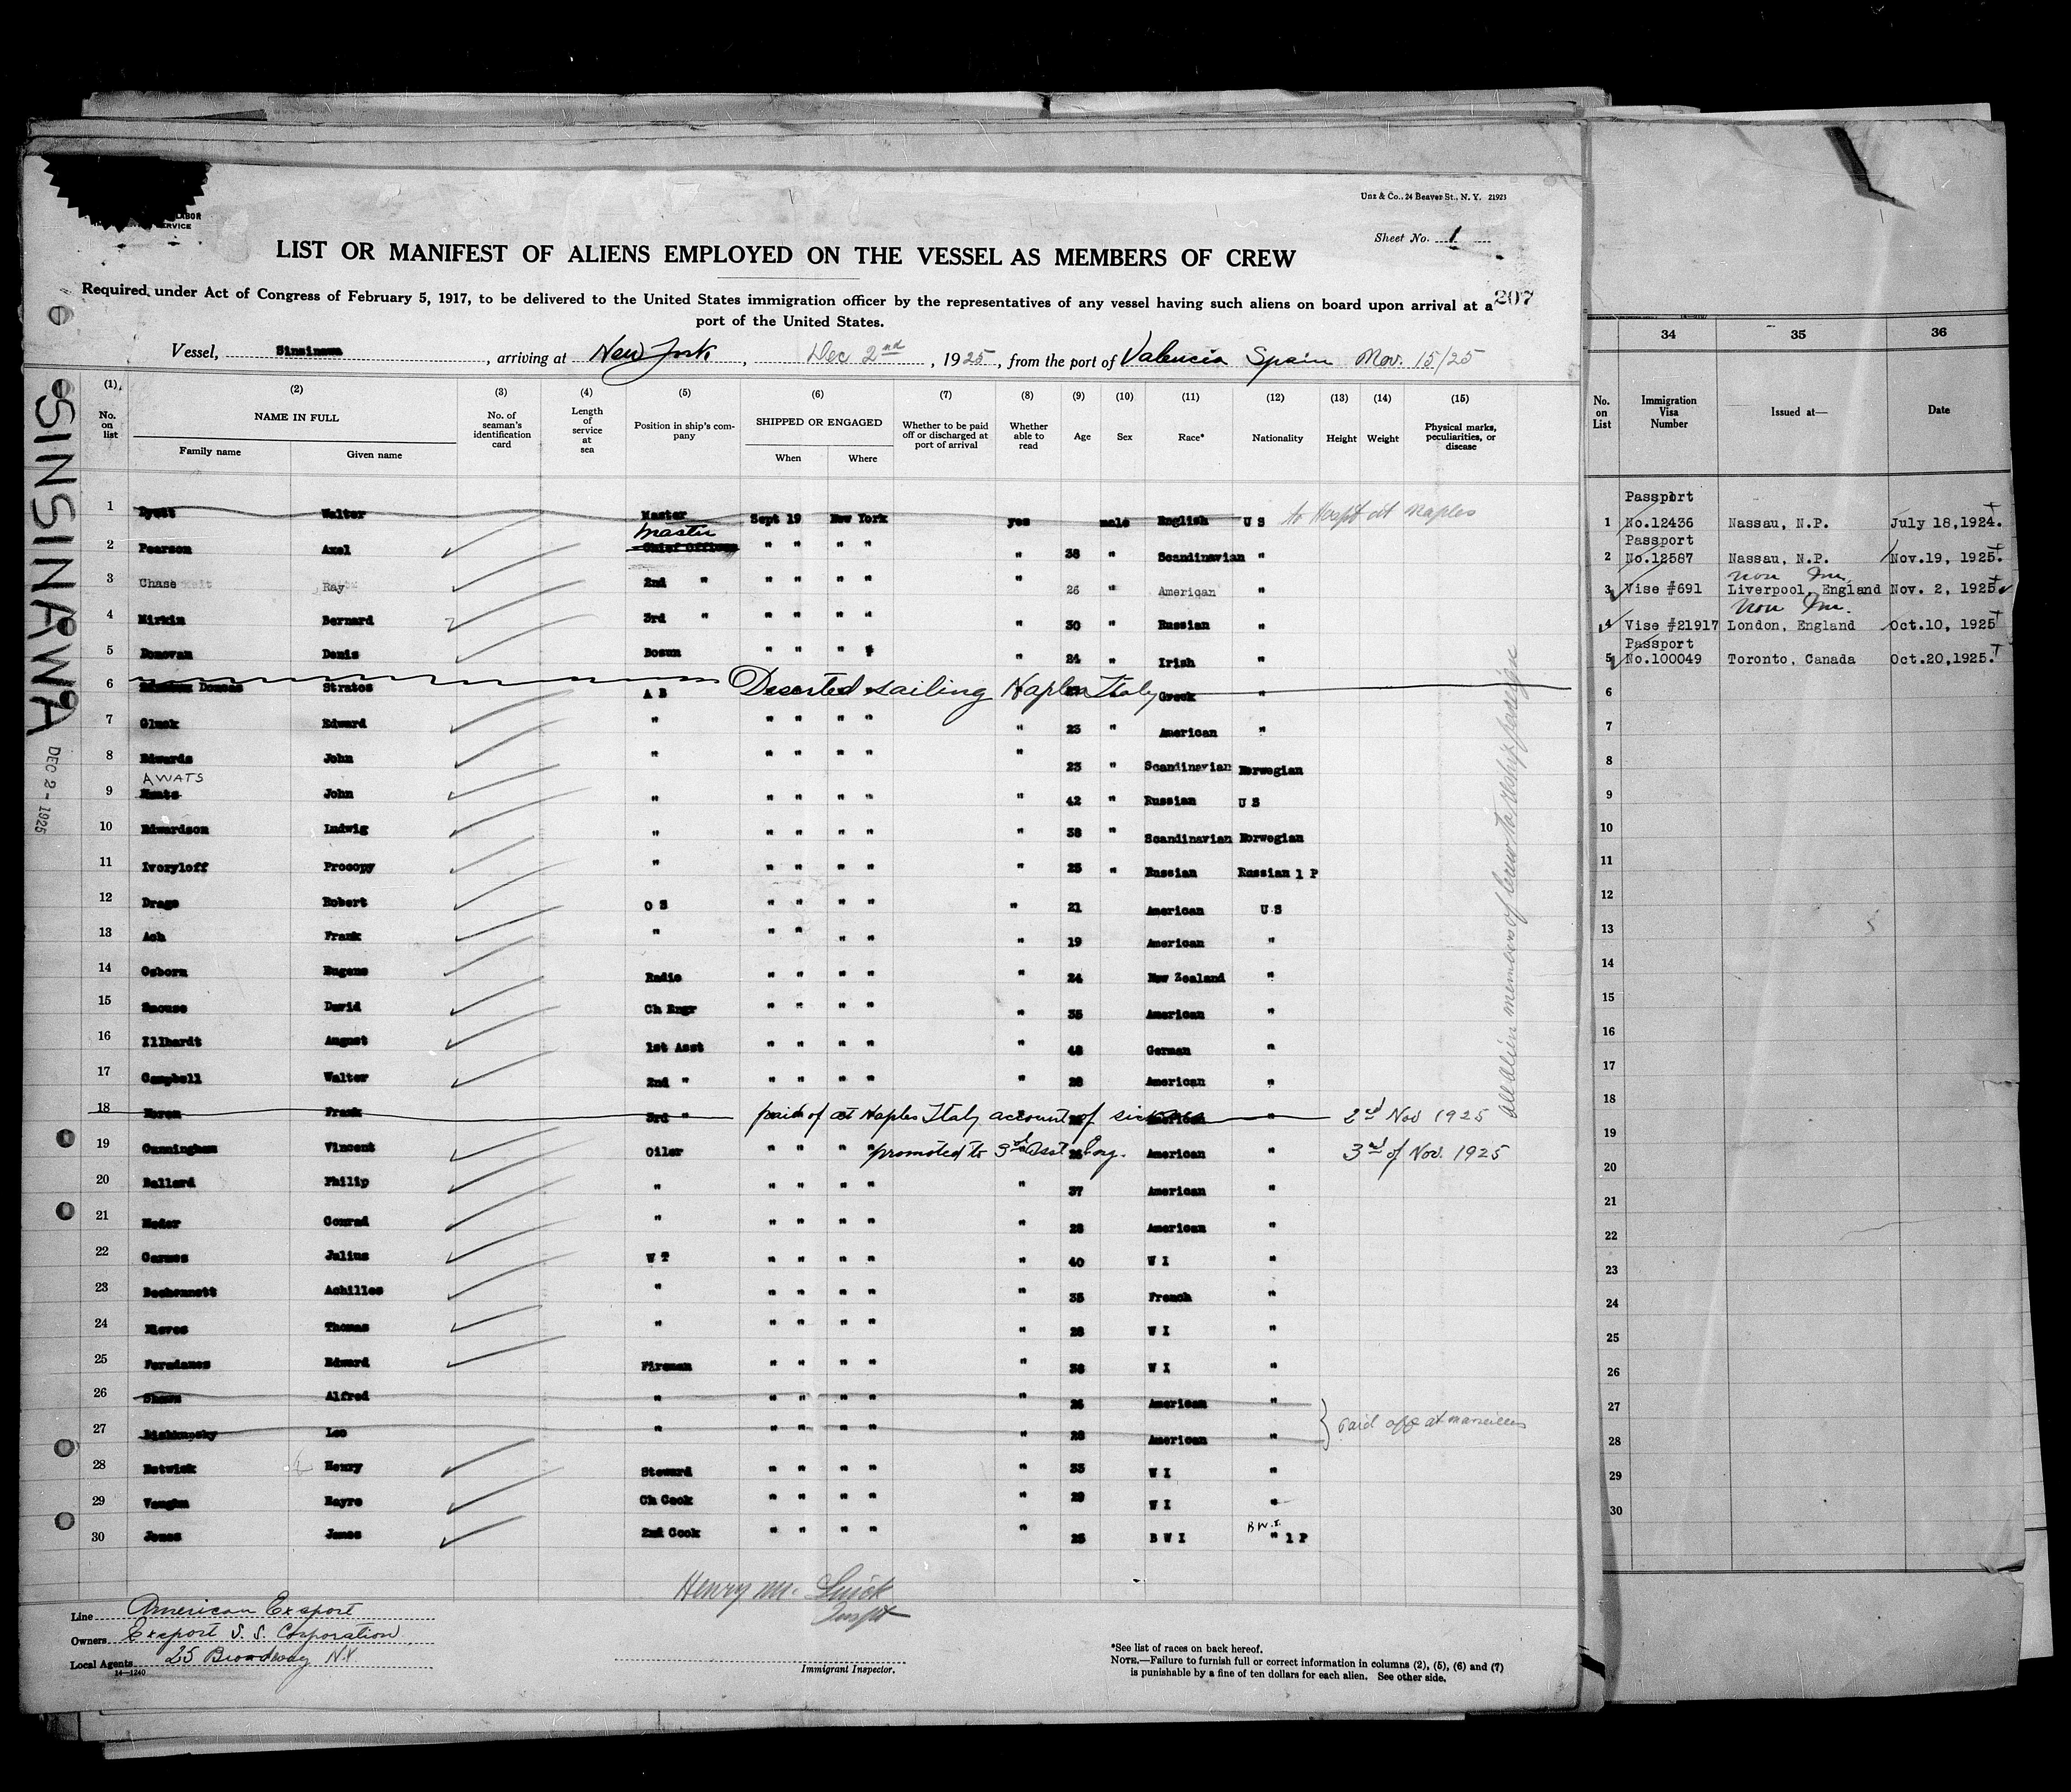 Unz & Co., 24 Beaver St., N. Y. 21923
LABOR
SERVICE
Sheet No. 1
LIST OR MANIFEST OF ALIENS EMPLOYED ON THE VESSEL AS MEMBERS OF CREW
Required under Act of Congress of February 5, 1917, to be delivered to the United States immigration officer by the representatives of any vessel having such aliens on board upon arrival at a
207
port of the United States.
Vessel, Sinsinawa, arriving at New York, Dec 2nd, 1925, from the port of Valencia Spain Nov. 15/25
SINSINAWA
DEC 2 - 1925
(1) (2) (3) (4) (5) (6) (7) (8) (9) (10) (11) (12) (13) (14) (15)
No. on list NAME IN FULL Family name Given name No. of seaman's identification card Length of service at sea Position in ship's company SHIPPED OR ENGAGED When Where Whether to be paid off or discharged at port of arrival Whether able to read Age Sex Race* Nationality Height Weight Physical marks, peculiarities, or disease
1 Walter Master Sept 19 New York yes male English U S to Hospt at Naples
Master
2 Pearson Axel Chief Officer " " " " " 38 " Scandinavian "
3 Chase Ray 2nd " " " " " " 26 " American "
4 Mirkin Bernard 3rd " " " " " " 30 " Russian "
5 Donovan Denis Bosun " " " " " 24 " Irish "
6 Doncas Stratos A B Deserted sailing Naples Italy Greek "
7 Glusk Edward " " " " " " 23 " American "
8 Edwards John " " " " " " 23 " Scandinavian Norwegian
AWATS
9 John " " " " " " 42 " Russian U S
10 Edwardson Ludwig " " " " " " 38 " Scandinavian Norwegian
11 Ivoryloff Procopy " " " " " " 25 " Russian Russian 1 P
12 Drago Robert O S " " " " " 21 American U S
13 Ash Frank " " " " " " 19 American "
14 Osborn Eugene Radio " " " " " 24 New Zealand "
15 Smouse David Ch Engr " " " " " 35 American "
16 Illhardt August 1st Asst " " " " " 48 German "
17 Campbell Walter 2nd " " " " " " 28 American "
18 Frank 3rd " paid of at Naples Italy account of sickness American " 2nd Nov 1925
19 Cunningham Vincent Oiler " " " " promoted to 3rd Asst Eng. American " 3rd of Nov. 1925
20 Ballard Philip " " " " " " 37 American "
21 Heder Conrad " " " " " " 28 American "
22 Carmes Julius W T " " " " " 40 W I "
23 Achilles " " " " " " 35 French "
24 Nieves Thomas " " " " " " 28 W I "
25 Edward Fireman " " " " " 38 W I "
26 Shawn Alfred " " " " " " 26 American "
27 Leo " " " " " " 28 American "
paid off at Marseilles
28 Estwick Henry Steward " " " " " 33 W I "
29 Vaughn Hayre Ch Cook " " " " " 29 W I "
B W.I.
30 Jones James 2nd Cook " " " " " 25 B W I " 1 P
All alien members of crew to reship foreign
Henry M. Quick
Inspt
Immigrant Inspector.
Line American Export
Owners Export S. S. Corporation
Local Agents 25 Broadway N.Y.
14—1240
*See list of races on back hereof.
NOTE.—Failure to furnish full or correct information in columns (2), (5), (6) and (7)
is punishable by a fine of ten dollars for each alien. See other side.
34 35 36
No. on List Immigration Visa Number Issued at— Date
Passport
1 No.12436 Nassau, N.P. July 18,1924.
Passport
2 No.12587 Nassau, N.P. Nov.19, 1925.
non Im.
3 Vise #691 Liverpool, England Nov. 2, 1925
non Im.
4 Vise #21917 London, England Oct.10, 1925
Passport
5 No.100049 Toronto, Canada Oct.20,1925.
6
7
8
9
10
11
12
13
14
15
16
17
18
19
20
21
22
23
24
25
26
27
28
29
30